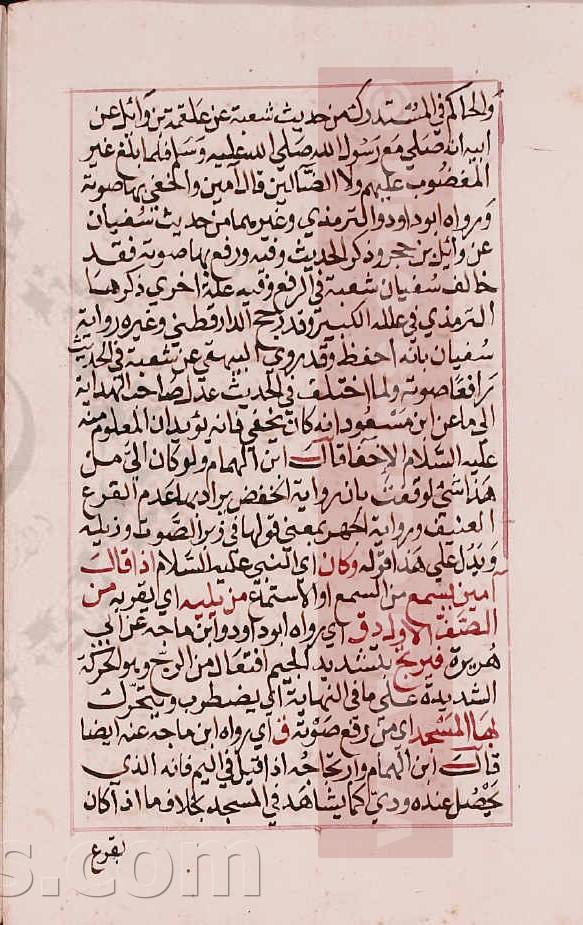 والحاكم في المستدرك من حديث شعبة عن علقمة بن وائل عن
ابيه انه صلي مع رسول الله صلي الله عليه وسلم فلما بلغ غير
المغضوب عليهم ولا الضالين قال آمين واخفي بها صوته
ورواه ابو داود والترمذي وغيرهما من حديث سفيان
عن وائل بن حجر وذكر الحديث وفيه ورفع بها صوته فقد
خالف سفيان شعبة في الرفع وفيه علة اخري ذكرها
الترمذي في علله الكبير وقد رجح الدارقطني وغيره رواية
سفيان بانه احفظ وقد روي البيهقي عن شعبة في الحديث
رافعا صوته ولما اختلف في الحديث عدل صاحب الهداية
الي ما عن ابن مسعود انه كان يخفي فانه يؤيد ان المعلوم منه
عليه السلام الاخفا قال ابن الهمام ولو كان الي من
هذا شئ لوفقت بان رواية الخفض يراد بها عدم القرع
العنيف ورواية الجهر بمعني قولها في زير الصوت وذيله
ويدل علي هذا قوله وكان اي النبي عليه السلام اذا قال
آمين يسمع من السمع او الاستماع من يليه اي يقربه من
الصف الاول د ق اي رواه ابو داود وابن ماجه عن ابي
هريرة فيرتج بتشديد الجيم افتعال من الرج وهو الحركة
الشديدة علي ما في النهاية اي يضطرب ويتحرك
بها المسجد اي من رفع صوته ق اي رواه ابن ماجه عنه ايضا
قال ابن الهمام وارتجاجه اذا قيل في اليم فانه الذي
يحصل عنده دوي كما يشاهد في المسجد بخلاف ما اذا كان
بقرع
s.com